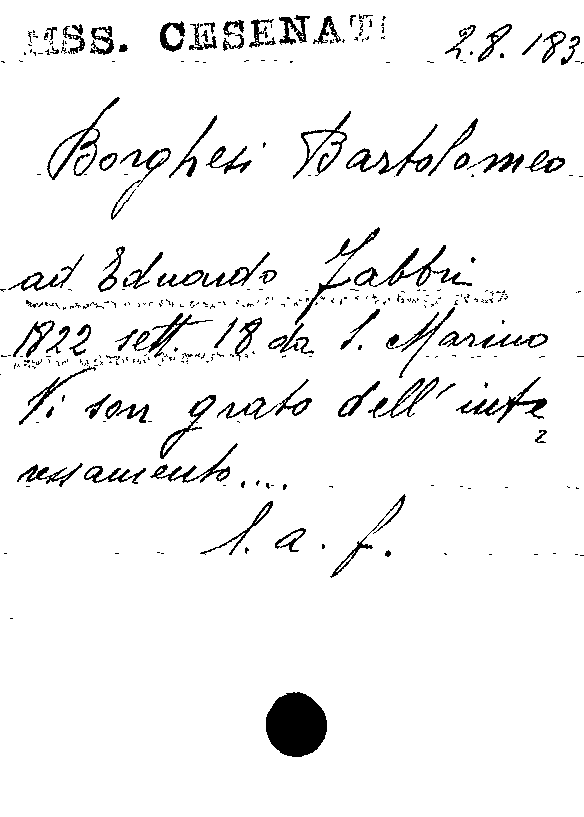 MSS. CESENATI 2.8.183
Borghesi Bartolomeo
ad Eduardo Fabbri
1822 sett. 18 da S. Marino
Vi son grato dell'inte
ressamento....
l. a. f.